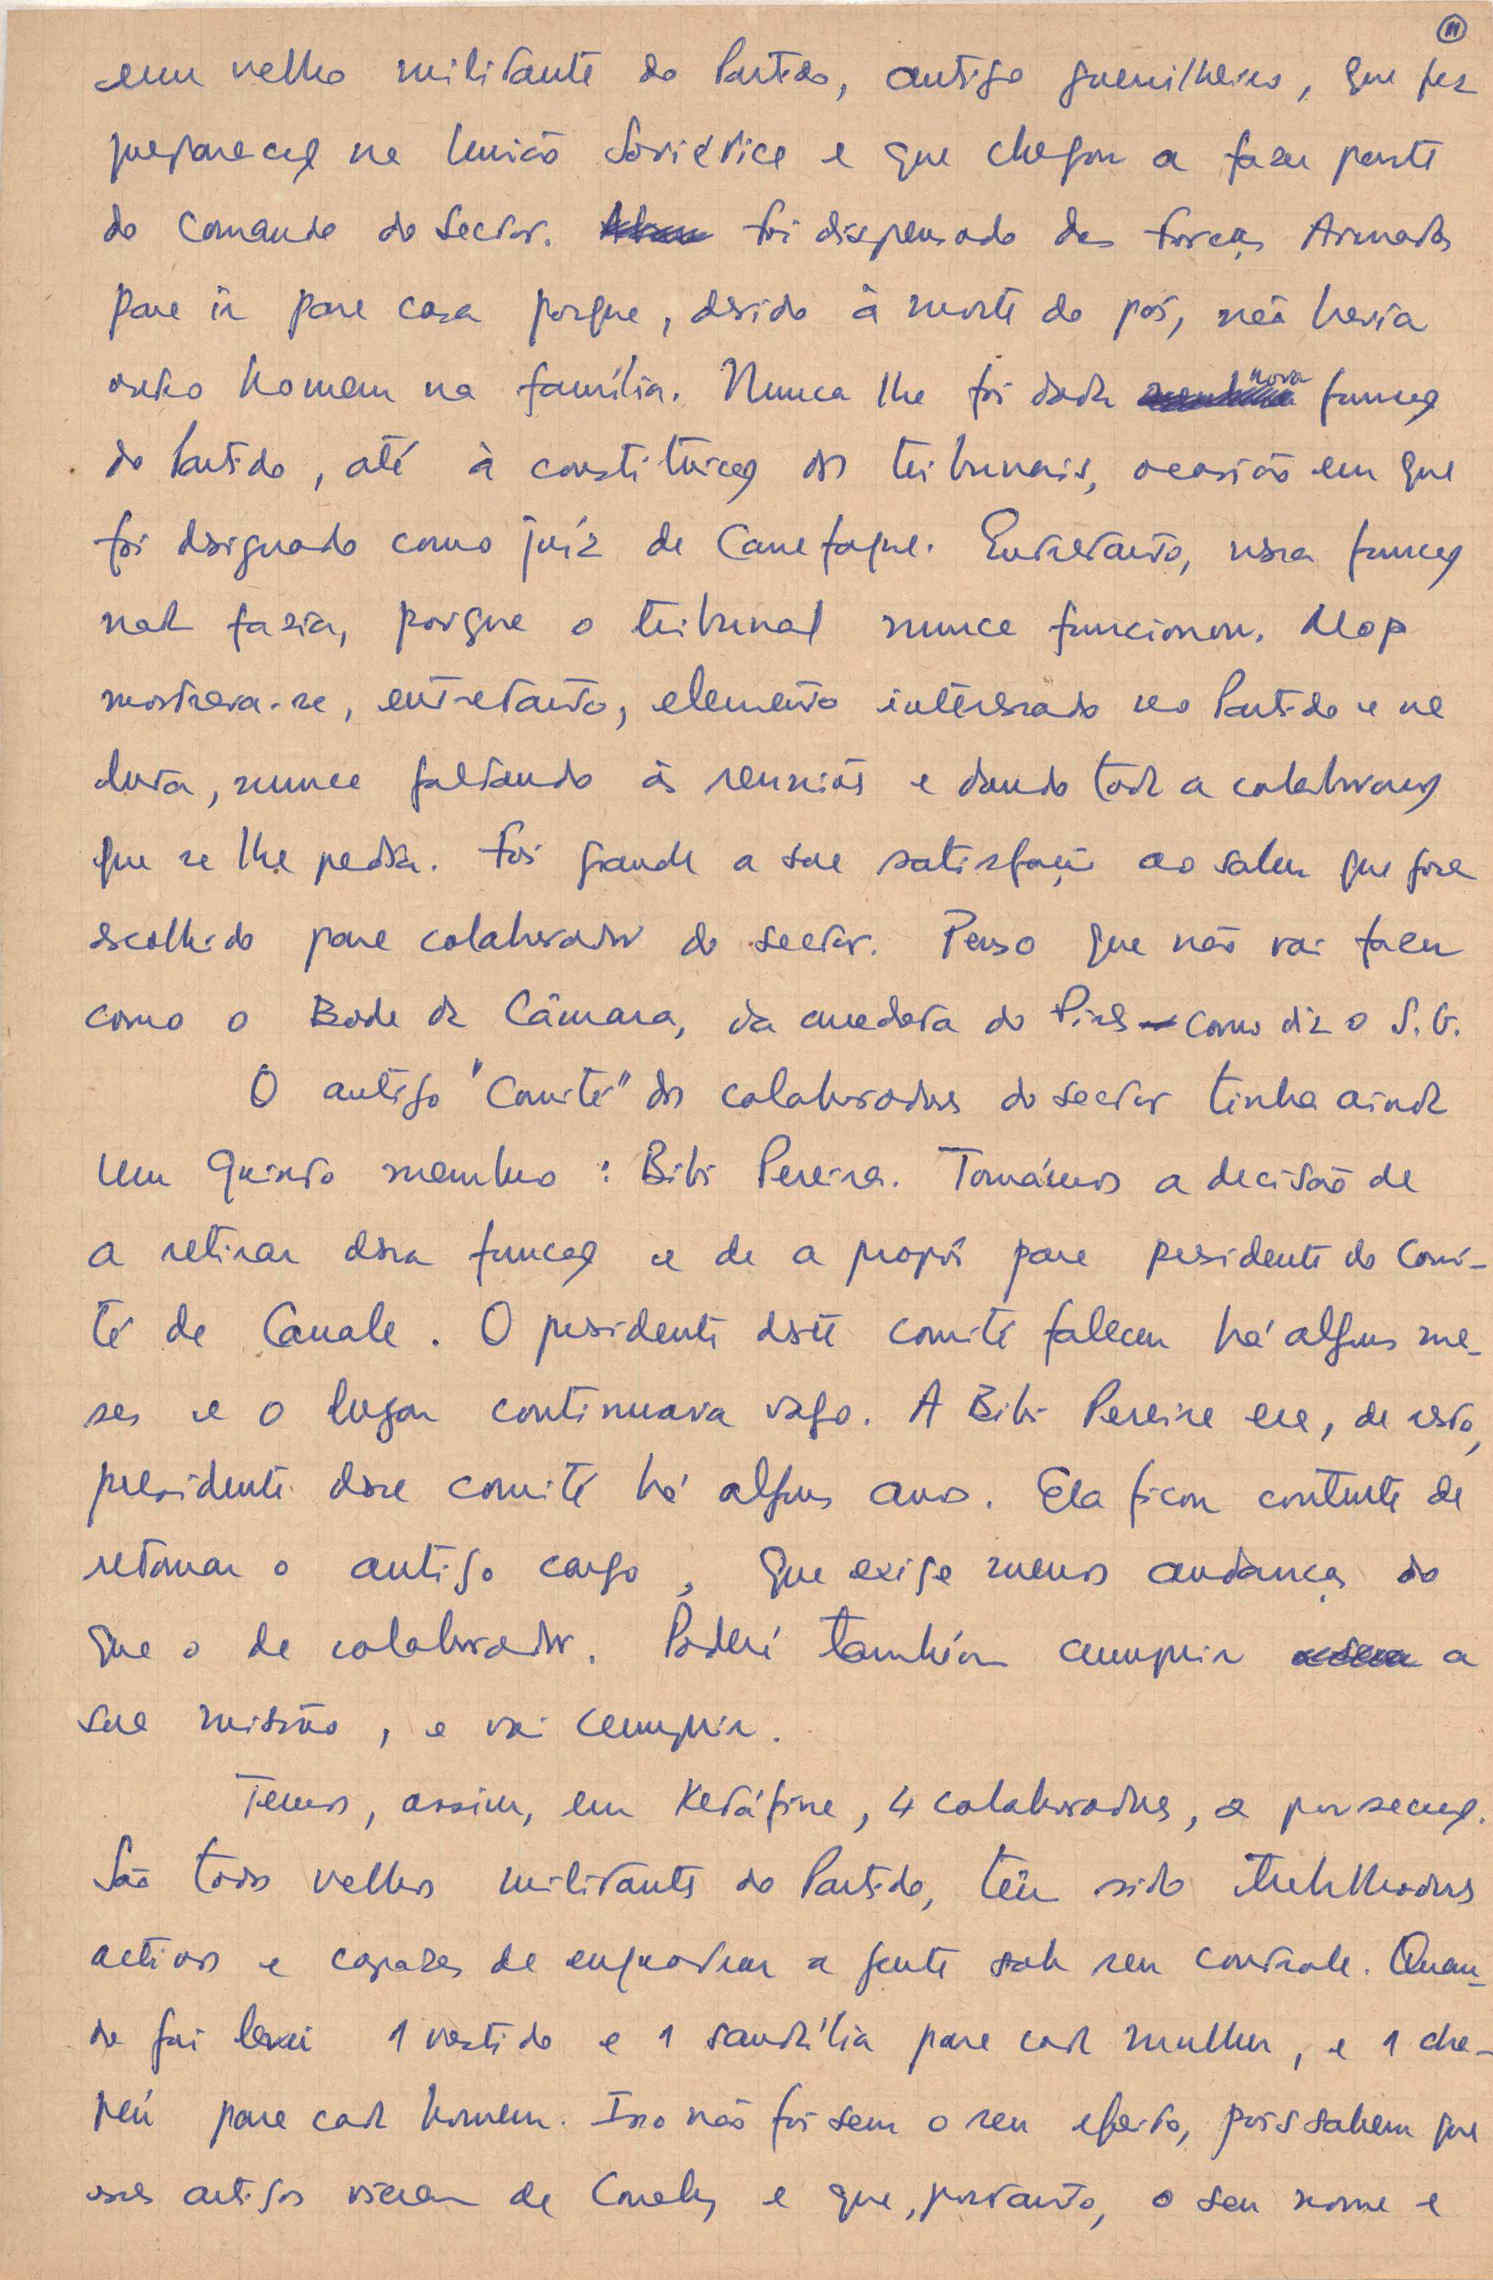 11
um velho militante do Partido, antigo guerrilheiro, que fez
preparação na União Soviética e que chegou a fazer parte
do Comando do Sector. Foi dispensado das Forças Armadas
para ir para casa porque, devido à morte do pai, não havia
outro homem na família. Nunca lhe foi dada nova função
do Partido, até à constituição dos tribunais, ocasião em que
foi designado como juiz de Canefaque. Entretanto, nessa função
nada fazia, porque o tribunal nunca funcionou.
mostrava-se, entretanto, elemento interessado no Partido e na
luta, nunca faltando às reuniões e dando toda a colaboração
que se lhe pedia. Foi grande a sua satisfação ao saber que fora
escolhido para colaborador do sector. Penso que não vai fazer
como o Bode da Câmara, da anedota do Pires — como diz o S.G.
O antigo "Comité" dos colaboradores do sector tinha ainda
um quinto membro: Bibi Pereira. Tomámos a decisão de
a retirar dessa função e de a propôr para presidente do Comi-
té de Canale. O presidente deste comité faleceu há alguns me-
ses e o lugar continuava vago. A Bibi Pereira era, de resto,
presidente desse comité há alguns anos. Ela ficou contente de
retomar o antigo cargo, que exige menos andanças do
que o de colaborador. Poderá também cumprir a
sua missão, e vai cumprir.
Temos, assim, em Ketáfine, 4 colaboradores, 2 por secção.
São todos velhos militantes do Partido, têm sido trabalhadores
activos e capazes de enquadrar a gente sob seu controle. Quan-
do fui levei 1 vestido e 1 sandália para cada mulher, e 1 cha-
péu para cada homem. Isso não foi sem o seu efeito, pois sabem que
esses artigos vieram de Conakry e que, portanto, o seu nome e